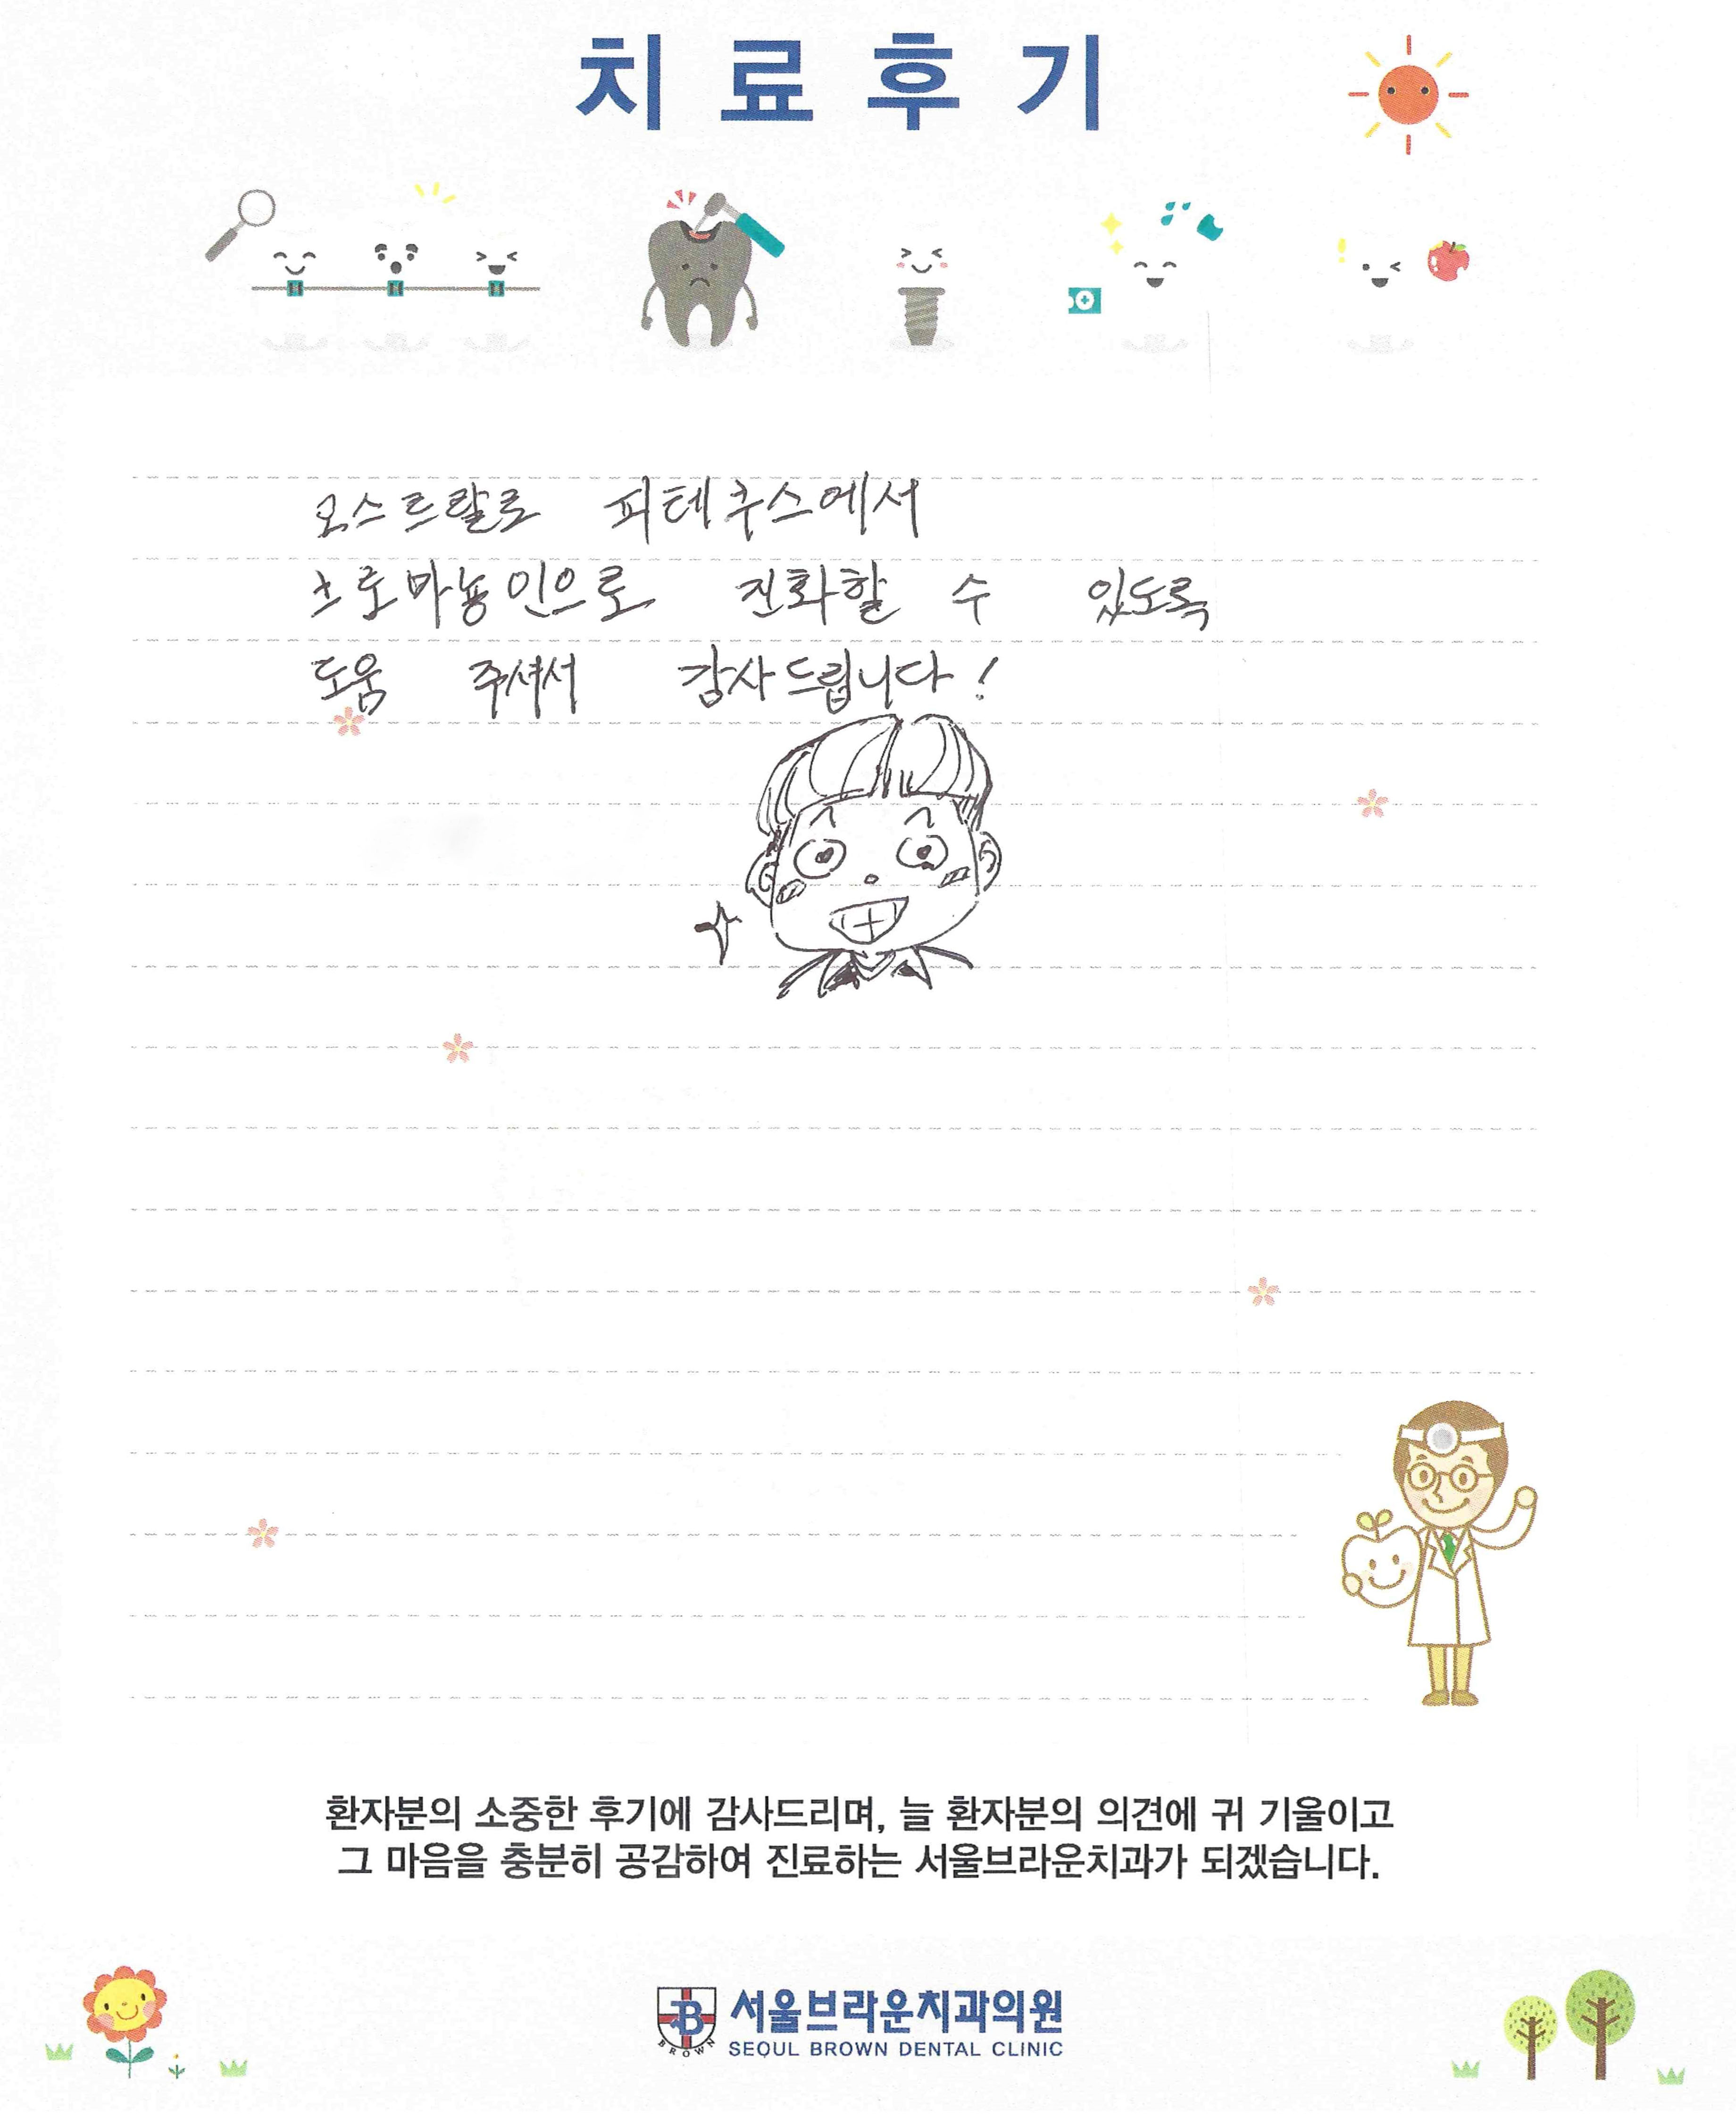 치료후기
오스트랄로 피테쿠스에서
크로마뇽인으로 진화할 수 있도록
도움 주셔서 감사드립니다!
환자분의 소중한 후기에 감사드리며, 늘 환자분의 의견에 귀 기울이고
그 마음을 충분히 공감하여 진료하는 서울브라운치과가 되겠습니다.
B
BROWN
서울브라운치과의원
SEOUL BROWN DENTAL CLINIC